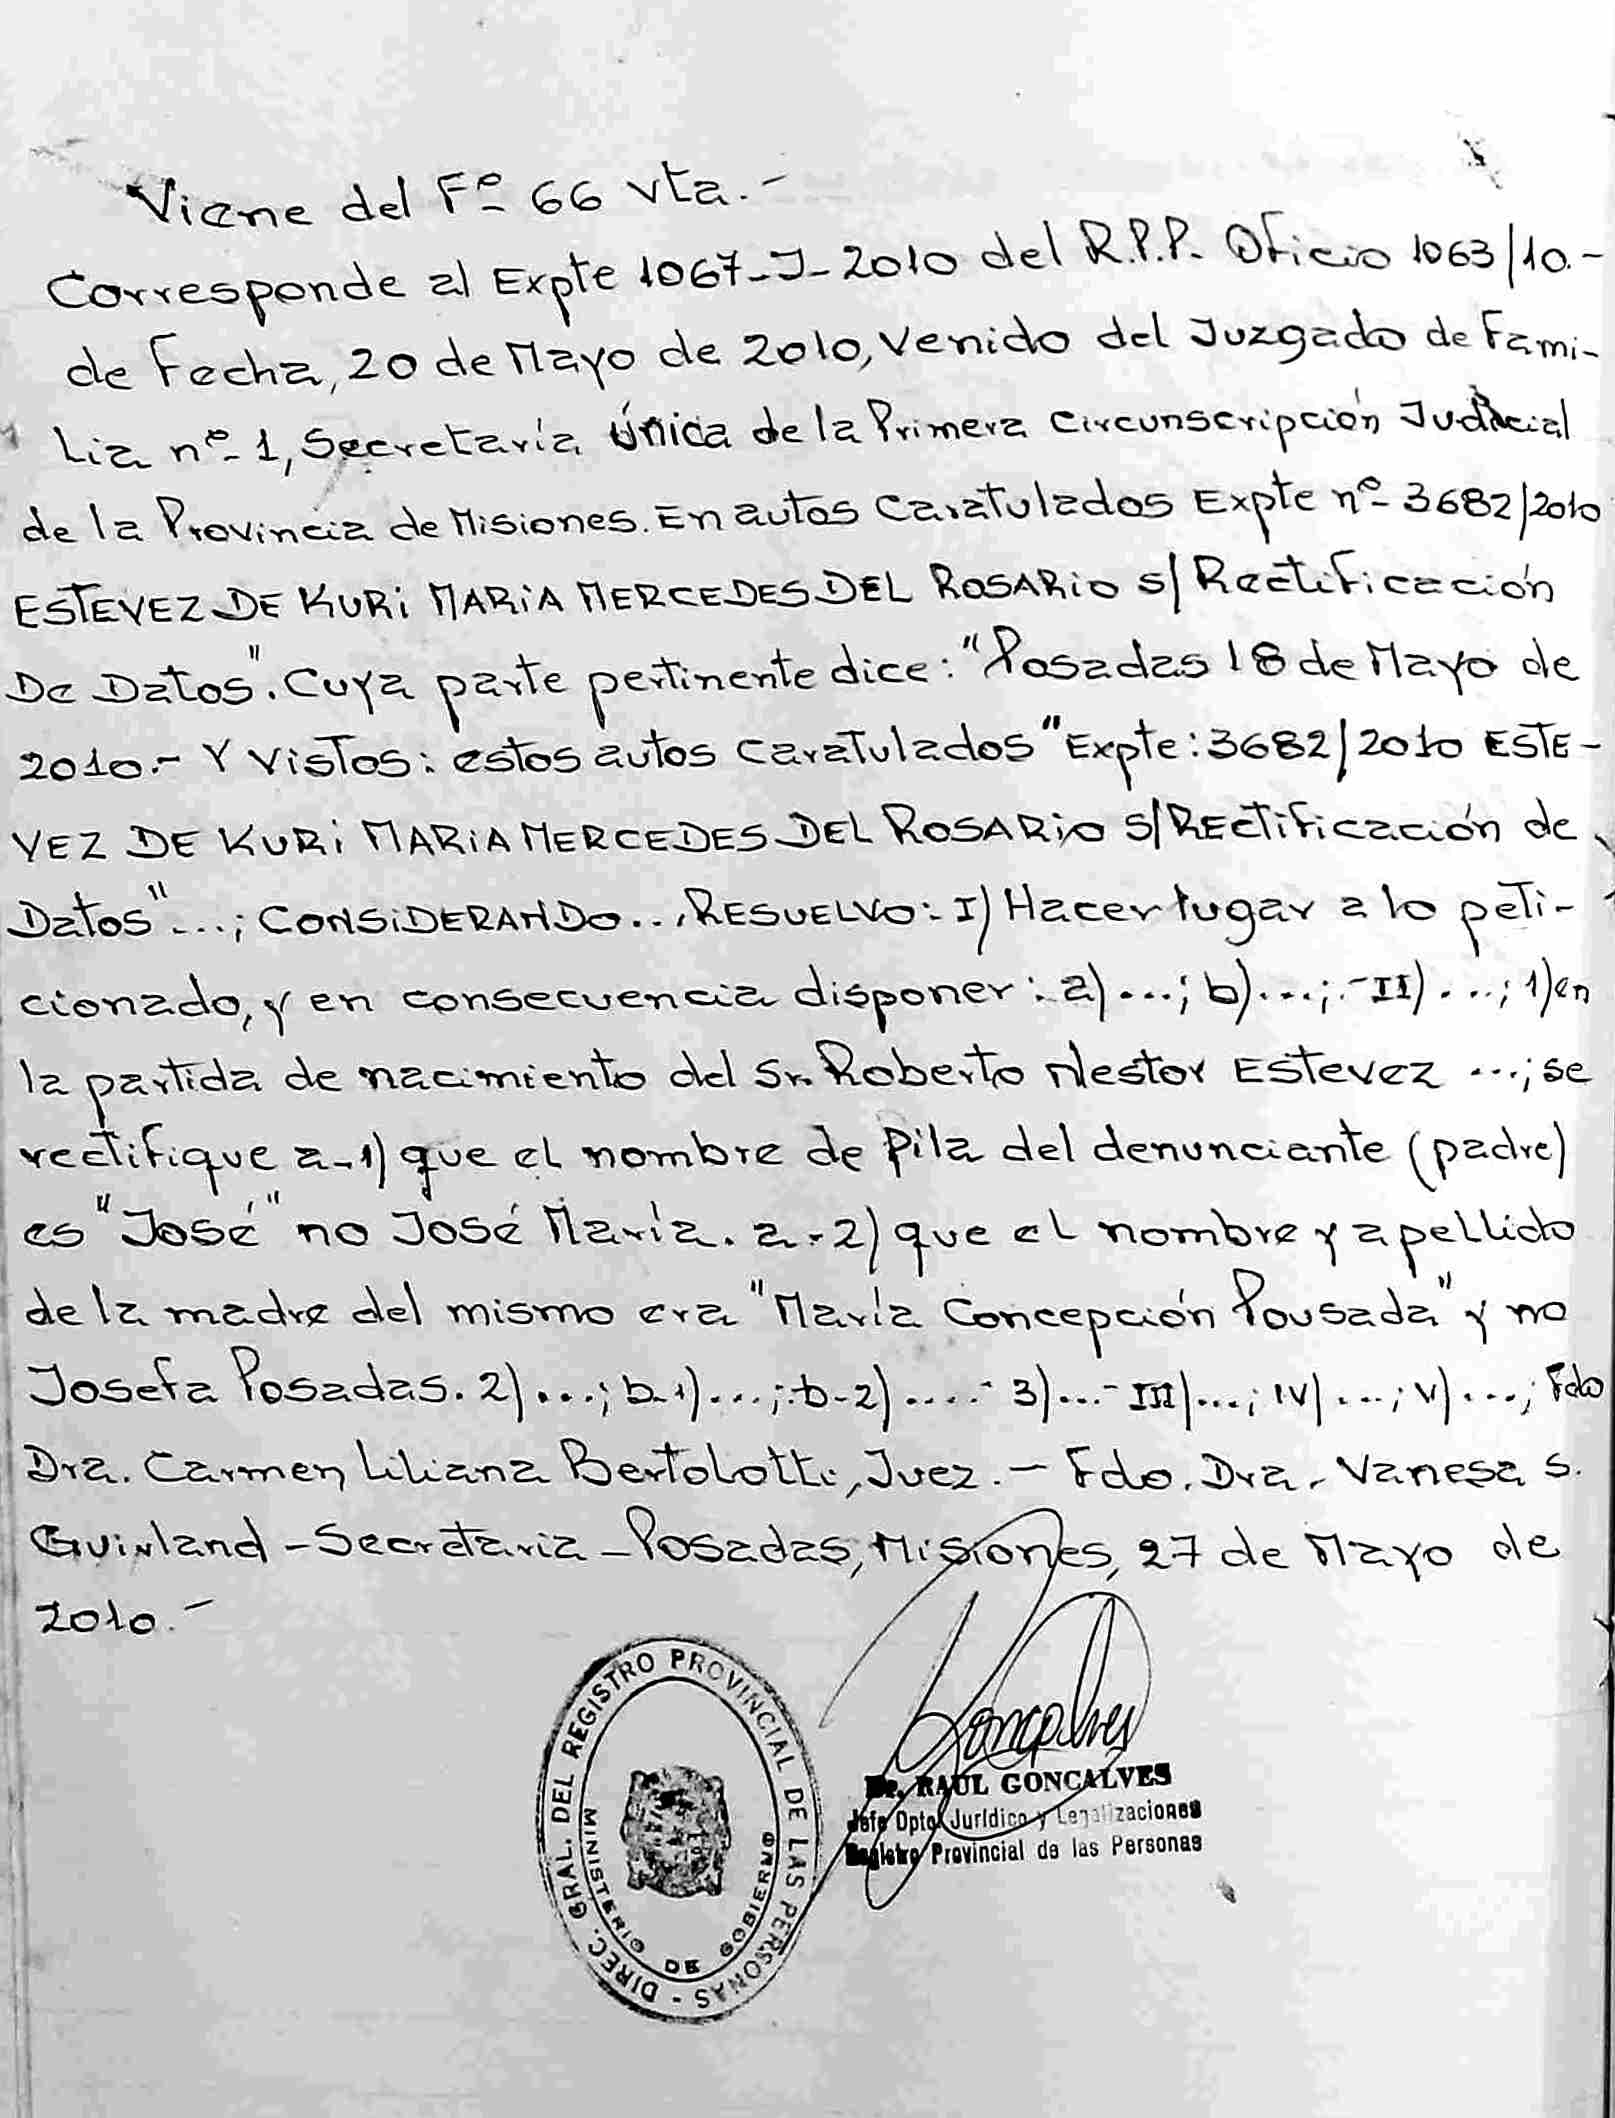 Viene del Fº 66 vta.-
Corresponde al Expte 1067-J-2010 del R.P.P. Oficio 1063/10.-
de Fecha, 20 de Mayo de 2010, Venido del Juzgado de Fami-
lia nº 1, Secretaría Única de la Primera Circunscripción Judicial
de la Provincia de Misiones. En autos Caratulados Expte nº 3682/2010
ESTEVEZ DE KURI MARIA MERCEDES DEL ROSARIO S/Rectificación
De Datos". Cuya parte pertinente dice: "Posadas 18 de Mayo de
2010.- Y Vistos: estos autos Caratulados "Expte: 3682/2010 ESTE-
VEZ DE KURI MARIA MERCEDES DEL ROSARIO S/REctificación de
Datos"...; CONSIDERANDO... RESUELVO: I) Hacer lugar a lo peti-
cionado, y en consecuencia disponer: a)...; b)...;.- II)...; 1) en
la partida de nacimiento del Sr. Roberto Nestor Estevez ...; se
rectifique a-1) que el nombre de pila del denunciante (padre)
es "José" no José María. a-2) que el nombre y apellido
de la madre del mismo era "María Concepción Pousada" y no
Josefa Posadas. 2)...; b-1)...;.b-2)....- 3)...- III)...; IV)...; V)...; Fdo
Dra. Carmen Liliana Bertolotti, Juez.- Fdo. Dra. Vanesa S.
-Secretaria-Posadas, Misiones, 27 de Mayo de
2010.-
DIREC. GRAL. DEL REGISTRO PROVINCIAL DE LAS PERSONAS -
MINISTERIO DE GOBIERNO
Goncalves
Dr. RAUL GONCALVES
Jefe Dpto. Jurídico y Legalizaciones
Registro Provincial de las Personas